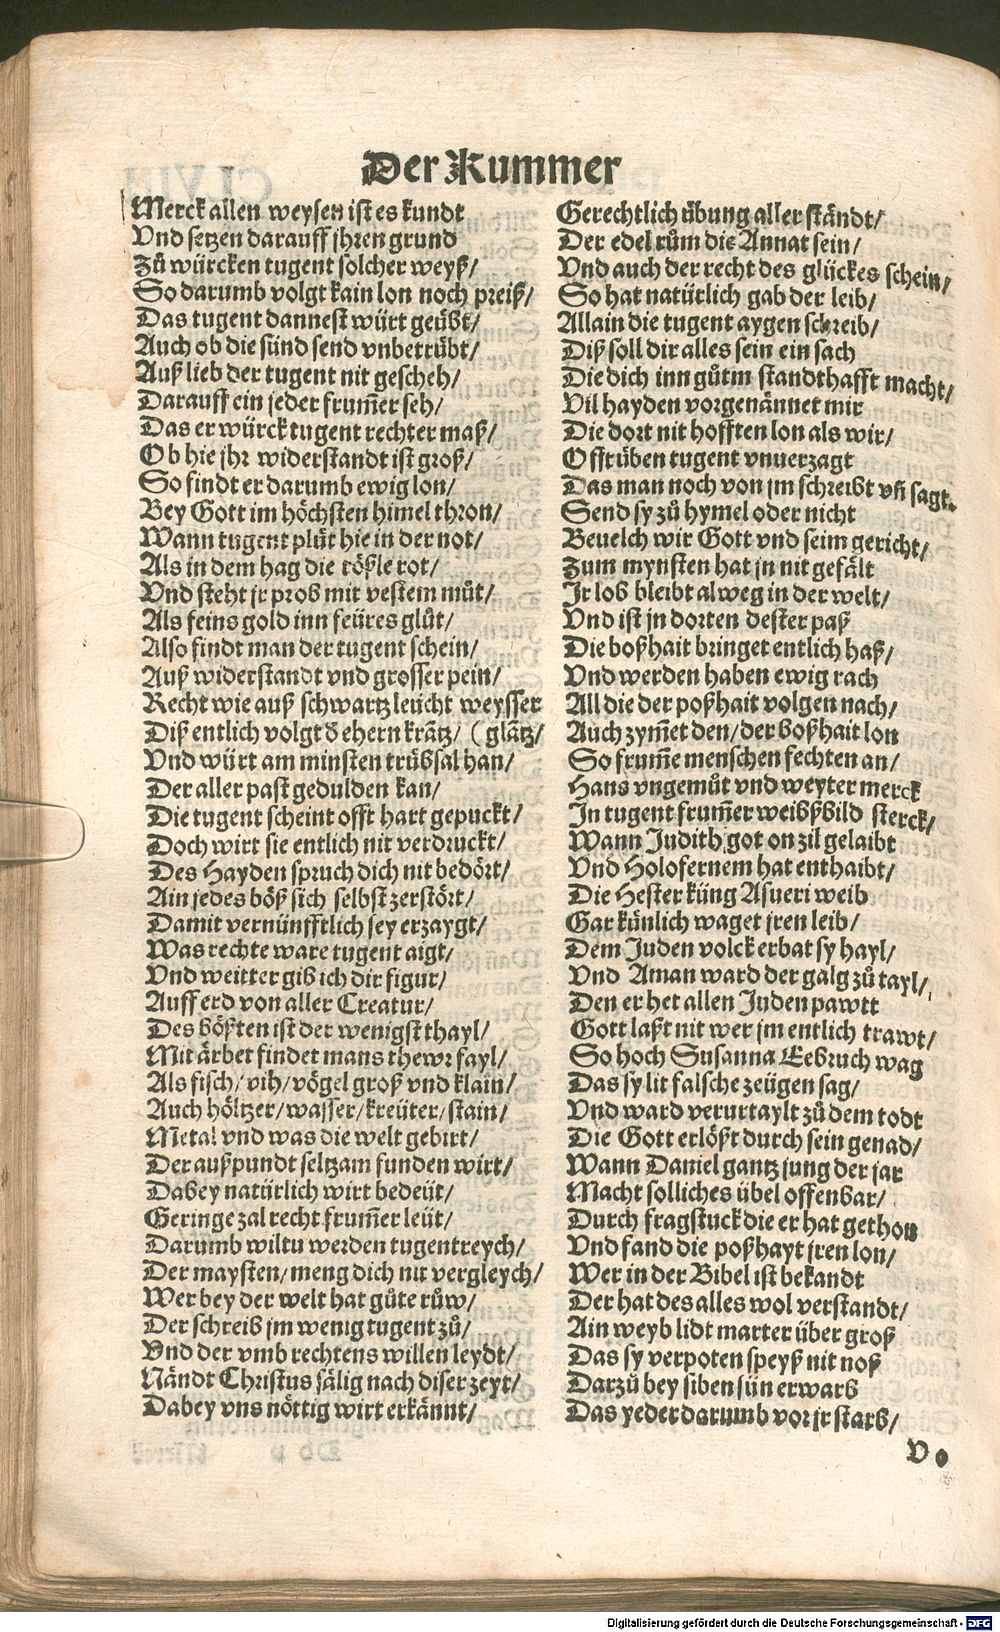 Der Kummer
Merck allen weysen ist es kundt
Vnd setzen darauff jhren grund
Zů würcken tugent solcher weyß/
So darumb volgt kain lon noch preiß/
Das tugent dannest würt geübt/
Auch ob die sünd send vnbetrübt/
Auß lieb der tugent nit gescheh/
Darauff ein jeder frum̃er seh/
Das er würck tugent rechter maß/
Ob hie jhr widerstandt ist groß/
So findt er darumb ewig lon/
Bey Gott im höchsten himel thron/
Wann tugent plüt hie in der not/
Als in dem hag die rößle rot/
Vnd steht jr prob mit vestem můt/
Als feins gold inn feüres glůt/
Also findt man der tugent schein/
Auß widerstandt vnd grosser pein/
Recht wie auß schwartz leücht weysser
Diß entlich volgt d̕ ehern kräntz/ (gläntz/
Vnd würt am minsten trübsal han/
Der aller past gedulden kan/
Die tugent scheint offt hart gepuckt/
Doch wirt sie entlich nit verdruckt/
Des Hayden spruch dich nit bedört/
Ain jedes böß sich selbst zerstört/
Damit vernünfftlich sey erzaygt/
Was rechte ware tugent aigt/
Vnd weitter gib ich dir figur/
Auff erd von aller Creatur/
Des bößten ist der wenigst thayl/
Mit ärbet findet mans thewr fayl/
Als fisch/ vih/ vögel groß vnd klain/
Auch höltzer/ wasser/ kreüter/ stain/
Metal vnd was die welt gebirt/
Der außpundt seltzam funden wirt/
Dabey natürlich wirt bedeüt/
Geringe zal recht frum̃er leüt/
Darumb wiltu werden tugentreych/
Der maysten/ meng dich nit vergleych/
Wer bey der welt hat gůte růw/
Der schreib jm wenig tugent zů/
Vnd der vmb rechtens willen leydt/
Nändt Christus sälig nach diser zeyt/
Dabey vns nöttig wirt erkännt/
Gerechtlich übung aller ständt/
Der edel rům die Annat sein/
Vnd auch der recht des glückes schein/
So hat natürlich gab der leib/
Allain die tugent aygen schreib/
Diß soll dir alles sein ein sach
Die dich inn gůtm standthafft macht/
Vil hayden vorgenännet mir
Die dort nit hofften lon als wir/
Offt üben tugent vnuerzagt
Das man noch von jm schreibt vñ sagt.
Send sy zů hymel oder nicht
Beuelch wir Gott vnd seim gericht/
Zum mynsten hat jn nit gefält
Jr lob bleibt alweg in der welt/
Vnd ist jn dorten dester paß
Die boßhait bringet entlich haß/
Vnd werden haben ewig rach
All die der poßhait volgen nach/
Auch zym̃et den/ der boßhait lon
So frum̃e menschen fechten an/
Hans vngemůt vnd weyter merck
In tugent frum̃er weibßbild sterck/
Wann Judith got on zil gelaibt
Vnd Holofernem hat enthaibt/
Die Hester küng Asueri weib
Gar künlich waget jren leib/
Dem Juden volck erbat sy hayl/
Vnd Aman ward der galg zů tayl/
Den er het allen Juden pawtt
Gott laßt nit wer jm entlich trawt/
So hoch Susanna Eebruch wag
Das sy lit falsche zeügen sag/
Vnd ward verurtaylt zů dem todt
Die Gott erlößt durch sein genad/
Wann Daniel gantz jung der jar
Macht solliches übel offenbar/
Durch fragstuck die er hat gethon
Vnd fand die poßhayt jren lon/
Wer in der Bibel ist bekandt
Der hat des alles wol verstandt/
Ain weyb lidt marter über groß
Das sy verpoten speyß nit noß
Darzů bey siben sün erwarb
Das yeder darumb vor jr starb/
Vo
Digitalisierung gefördert durch die Deutsche Forschungsgemeinschaft - DFG